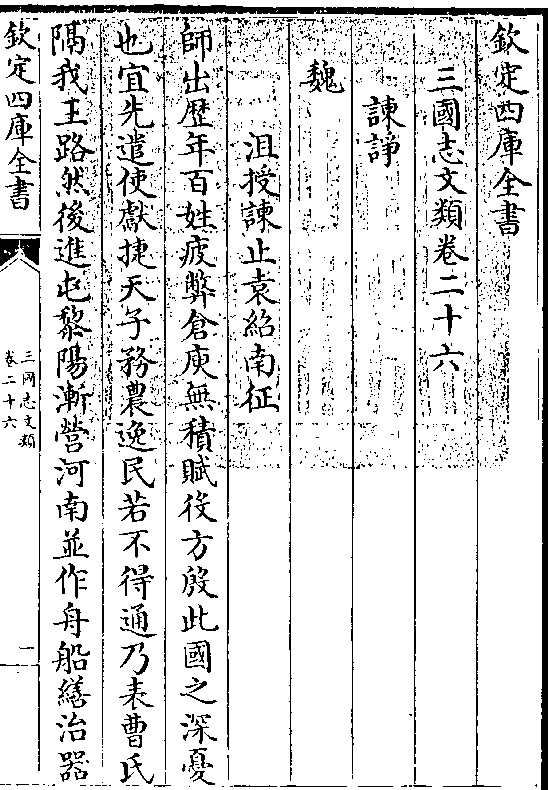 欽定四庫全書
三國志文類卷二十六
諫諍
魏
沮授諫止袁紹南征
師出歴年百姓疲弊倉庾無積賦役方殷此國之深憂
也宜先遣使獻捷天子務農逸民若不得通乃表曹氏
隔我王路然後進屯黎陽漸營河南並作舟船繕治器
欽定四庫全書
三國志文類
卷二十六
一